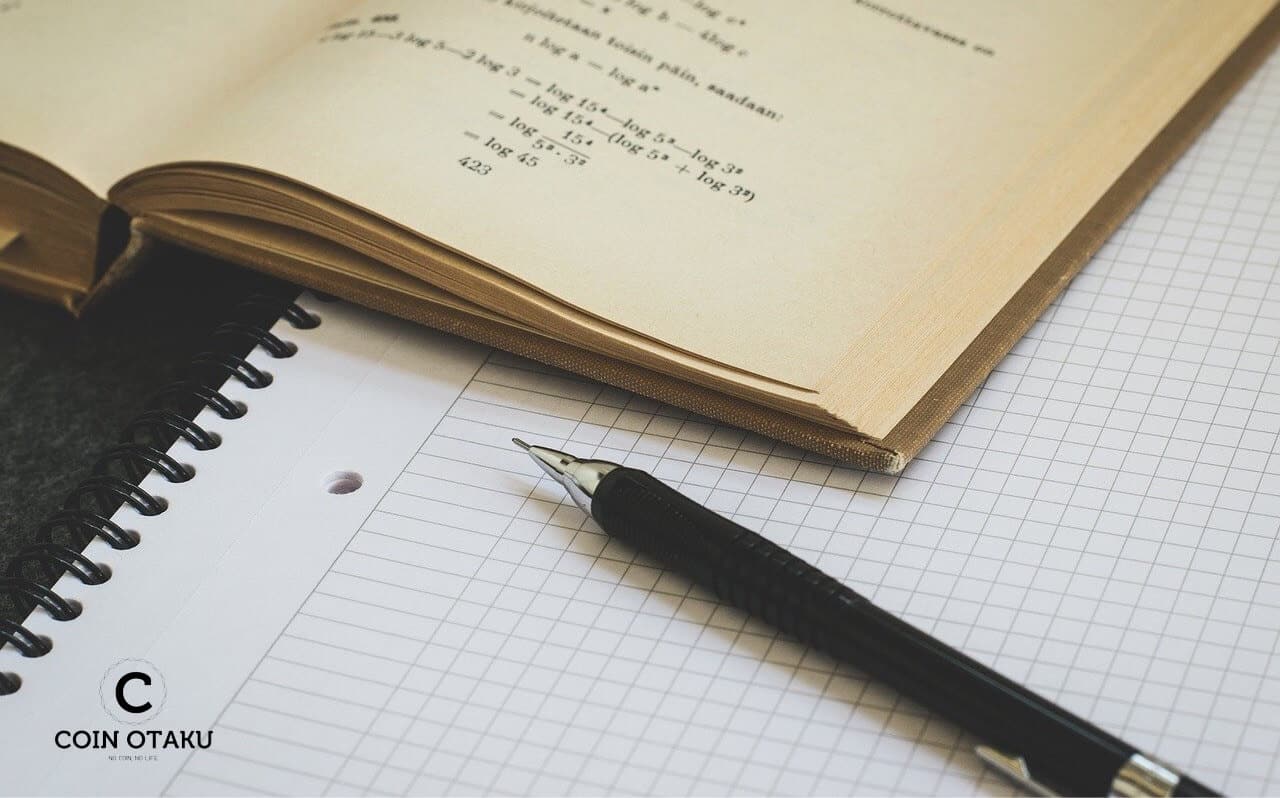 log b — 4log c
kirjoitetaan toisin päin, saadaan:
n log a — log aⁿ
log 15—3 log 5—2 log 3 = log 15⁴—log 5³—log 3²
= log 15⁴—(log 5³ + log 3²)
= log 15⁴
5³ · 3²
= log 45
423
COIN OTAKU
NO COIN, NO LIFE